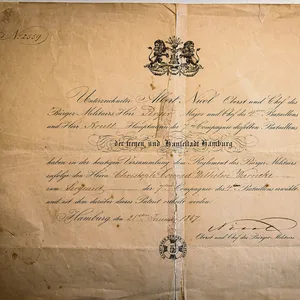 № 2559
Unterzeichneter Albert Nicol Oberst und Chef des
Bürger Militairs Herr Major und Chef des 2ten Bataillons
und Herr Hauptmann der 7ten Compagnie desselben Bataillons
der freien und Hansestadt Hamburg
haben in der heutigen Versammlung dem Reglement des Bürger Militairs
zufolge den Herrn Christoph Conrad Wilhelm
zum Sergeant der 7ten Compagnie des 2ten Bataillons erwählt
und ist ihm darüber dieses Patent ertheilt worden.
Hamburg den 1867
Nicol
Oberst und Chef des Bürger Militairs